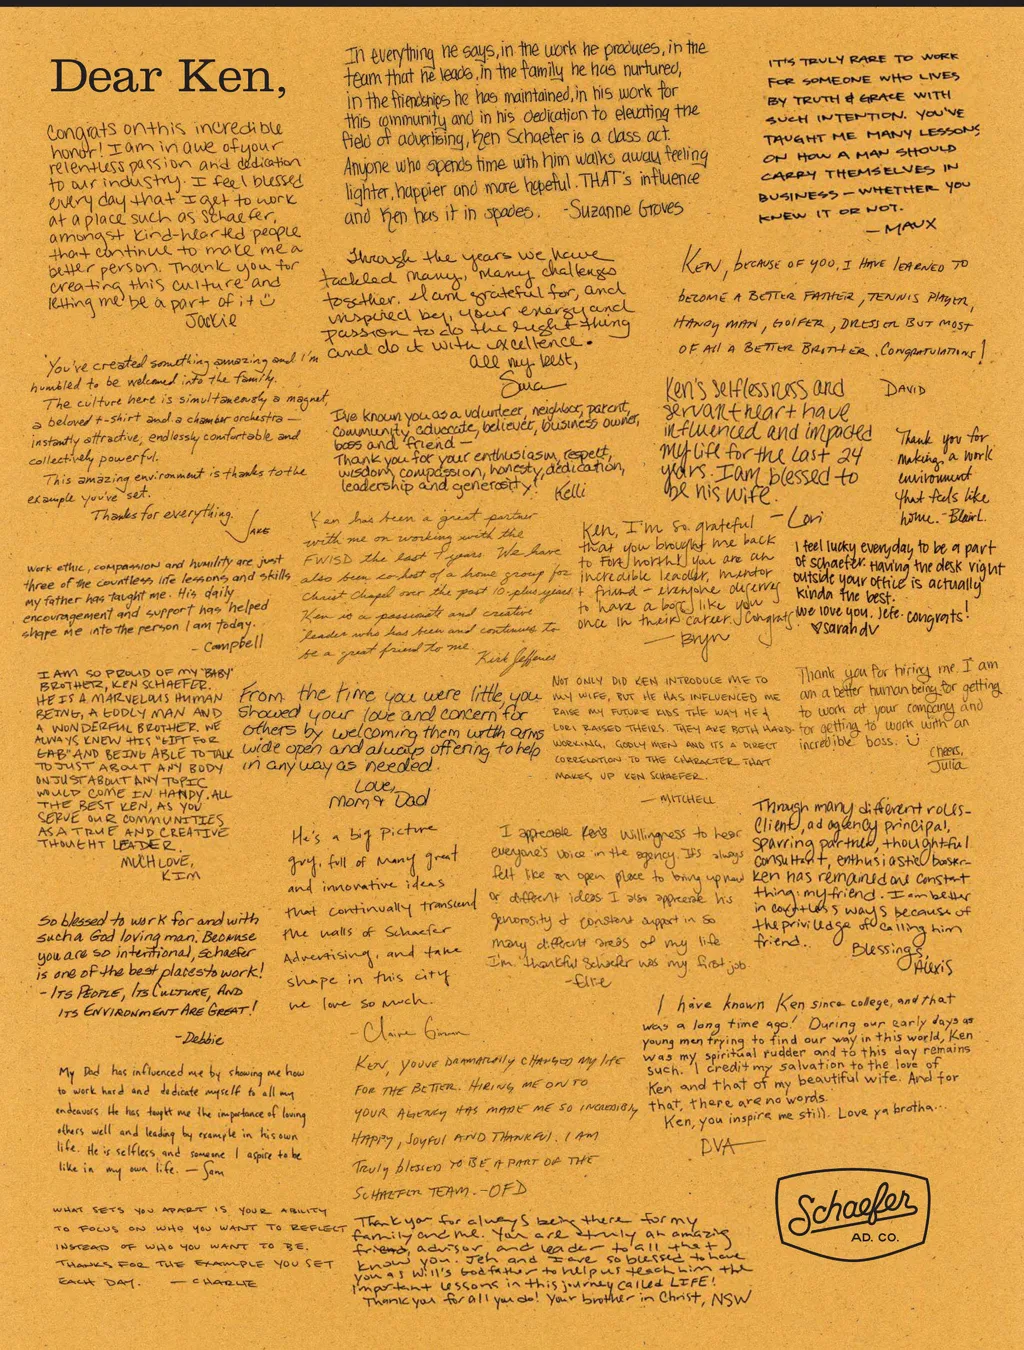 Dear Ken,
Congrats on this incredible
honor! I am in awe of your
relentless passion and dedication
to our industry. I feel blessed
every day that I get to work
at a place such as Schaefer,
amongst kind-hearted people
that continue to make me a
better person. Thank you for
creating this culture and
letting me be a part of it ☺
Jackie
In everything he says, in the work he produces, in the
team that he leads, in the family he has nurtured,
in the friendships he has maintained, in his work for
this community and in his dedication to elevating the
field of advertising, Ken Schaefer is a class act.
Anyone who spends time with him walks away feeling
lighter, happier and more hopeful. THAT's influence
and Ken has it in spades. -Suzanne Groves
IT'S TRULY RARE TO WORK
FOR SOMEONE WHO LIVES
BY TRUTH & GRACE WITH
SUCH INTENTION. YOU'VE
TAUGHT ME MANY LESSONS
ON HOW A MAN SHOULD
CARRY THEMSELVES IN
BUSINESS – WHETHER YOU
KNEW IT OR NOT.
— MAUX
Through the years we have
tackled many, many challenges
together. I am grateful for, and
inspired by, your energy and
passion to do the right thing
and do it with excellence.
All my best,
Sara
KEN, BECAUSE OF YOU, I HAVE LEARNED TO
BECOME A BETTER FATHER, TENNIS PLAYER,
HANDY MAN, GOLFER, DRESSER BUT MOST
OF ALL A BETTER BROTHER. CONGRATULATIONS!
DAVID
You've created something amazing and I'm
humbled to be welcomed into the family.
The culture here is simultaneously a magnet,
a beloved t-shirt and a chamber orchestra —
instantly attractive, endlessly comfortable and
collectively powerful.
This amazing environment is thanks to the
example you've set.
Thanks for everything.
JAKE
I've known you as a volunteer, neighbor, parent,
community advocate, believer, business owner,
boss and friend —
Thank you for your enthusiasm, respect,
wisdom, compassion, honesty, dedication,
leadership and generosity!
Kelli
Ken's selflessness and
servant heart have
influenced and impacted
my life for the last 24
years. I am blessed to
be his wife.
- Lori
Thank you for
making a work
environment
that feels like
home. - Blair L.
Work ethic, compassion and humility are just
three of the countless life lessons and skills
my father has taught me. His daily
encouragement and support has helped
shape me into the person I am today.
- Campbell
Ken has been a great partner
with me on working with the
FWISD the last 9 years. We have
also been co-host of a home group for
Christ Chapel over the past 10-plus years.
Ken is a passionate and creative
leader who has been and continues to
be a great friend to me.
Kirk Jefferies
Ken, I'm so grateful
that you brought me back
to Fort Worth! You are an
incredible leader, mentor
& friend – everyone deserves
to have a boss like you
once in their career. Congrats!
— Bryn
I feel lucky everyday to be a part
of Schaefer. Having the desk right
outside your office is actually
kinda the best.
We love you, Jefe. Congrats!
♡ Sarah V
I AM SO PROUD OF MY "BABY"
BROTHER, KEN SCHAEFER.
HE IS A MARVELOUS HUMAN
BEING, A GODLY MAN AND
A WONDERFUL BROTHER. WE
ALWAYS KNEW HIS "GIFT FOR
GAB" AND BEING ABLE TO TALK
TO JUST ABOUT ANY BODY
ON JUST ABOUT ANY TOPIC
WOULD COME IN HANDY. ALL
THE BEST KEN, AS YOU
SERVE OUR COMMUNITIES
AS A TRUE AND CREATIVE
THOUGHT LEADER.
MUCH LOVE,
KIM
From the time you were little, you
showed your love and concern for
others by welcoming them with arms
wide open and always offering to help
in any way as needed.
Love,
Mom & Dad
NOT ONLY DID KEN INTRODUCE ME TO
MY WIFE, BUT HE HAS INFLUENCED ME
RAISE MY FUTURE KIDS THE WAY HE &
LORI RAISED THEIRS. THEY ARE BOTH HARD-
WORKING, GODLY MEN AND IT'S A DIRECT
CORRELATION TO THE CHARACTER THAT
MAKES UP KEN SCHAEFER.
— MITCHELL
Thank you for hiring me. I am
am a better human being for getting
to work at your company and
for getting to work with an
incredible boss. ☺
Cheers,
Julia
He's a big picture
guy, full of many great
and innovative ideas
that continually transcend
the walls of Schaefer
Advertising, and take
shape in this city
we love so much.
- Claire
I appreciate Ken's willingness to hear
everyone's voice in the agency. It's always
felt like an open place to bring up new
or different ideas. I also appreciate his
generosity & constant support in so
many different areas of my life
I'm thankful Schaefer was my first job.
- Ellie
Through many different roles -
Client, ad agency principal,
sparring partner, thoughtful
consultant, enthusiastic booster -
Ken has remained one constant
thing: my friend. I am better
in countless ways because of
the priviledge of calling him
friend.
Blessings,
Alexis
So blessed to work for and with
such a God loving man. Because
you are so intentional, Schaefer
is one of the best places to work!
- ITS PEOPLE, ITS CULTURE, AND
ITS ENVIRONMENT ARE GREAT!
- Debbie
I have known Ken since college, and that
was a long time ago! During our early days as
young men trying to find our way in this world, Ken
was my spiritual rudder and to this day remains
such. I credit my salvation to the love of
Ken and that of my beautiful wife. And for
that, there are no words.
Ken, you inspire me still. Love ya brotha...
DVA
My Dad has influenced me by showing me how
to work hard and dedicate myself to all my
endeavors. He has taught me the importance of loving
others well and leading by example in his own
life. He is selfless and someone I aspire to be
like in my own life. — Sam
KEN, YOU'VE DRAMATICALLY CHANGED MY LIFE
FOR THE BETTER. HIRING ME ON TO
YOUR AGENCY HAS MADE ME SO INCREDIBLY
HAPPY, JOYFUL AND THANKFUL. I AM
TRULY BLESSED TO BE A PART OF THE
SCHAEFER TEAM. - OFD
WHAT SETS YOU APART IS YOUR ABILITY
TO FOCUS ON WHO YOU WANT TO REFLECT
INSTEAD OF WHO YOU WANT TO BE.
THANKS FOR THE EXAMPLE YOU SET
EACH DAY. — CHARLIE
Thank you for always being there for my
family and me. You are truly an amazing
friend, advisor, and leader to all that
know you. Jen and I are so blessed to have
you as Will's Godfather to help us teach him the
important lessons in this journey called LIFE!
Thank you for all you do! Your brother in Christ, NSW
Schaefer
AD. CO.